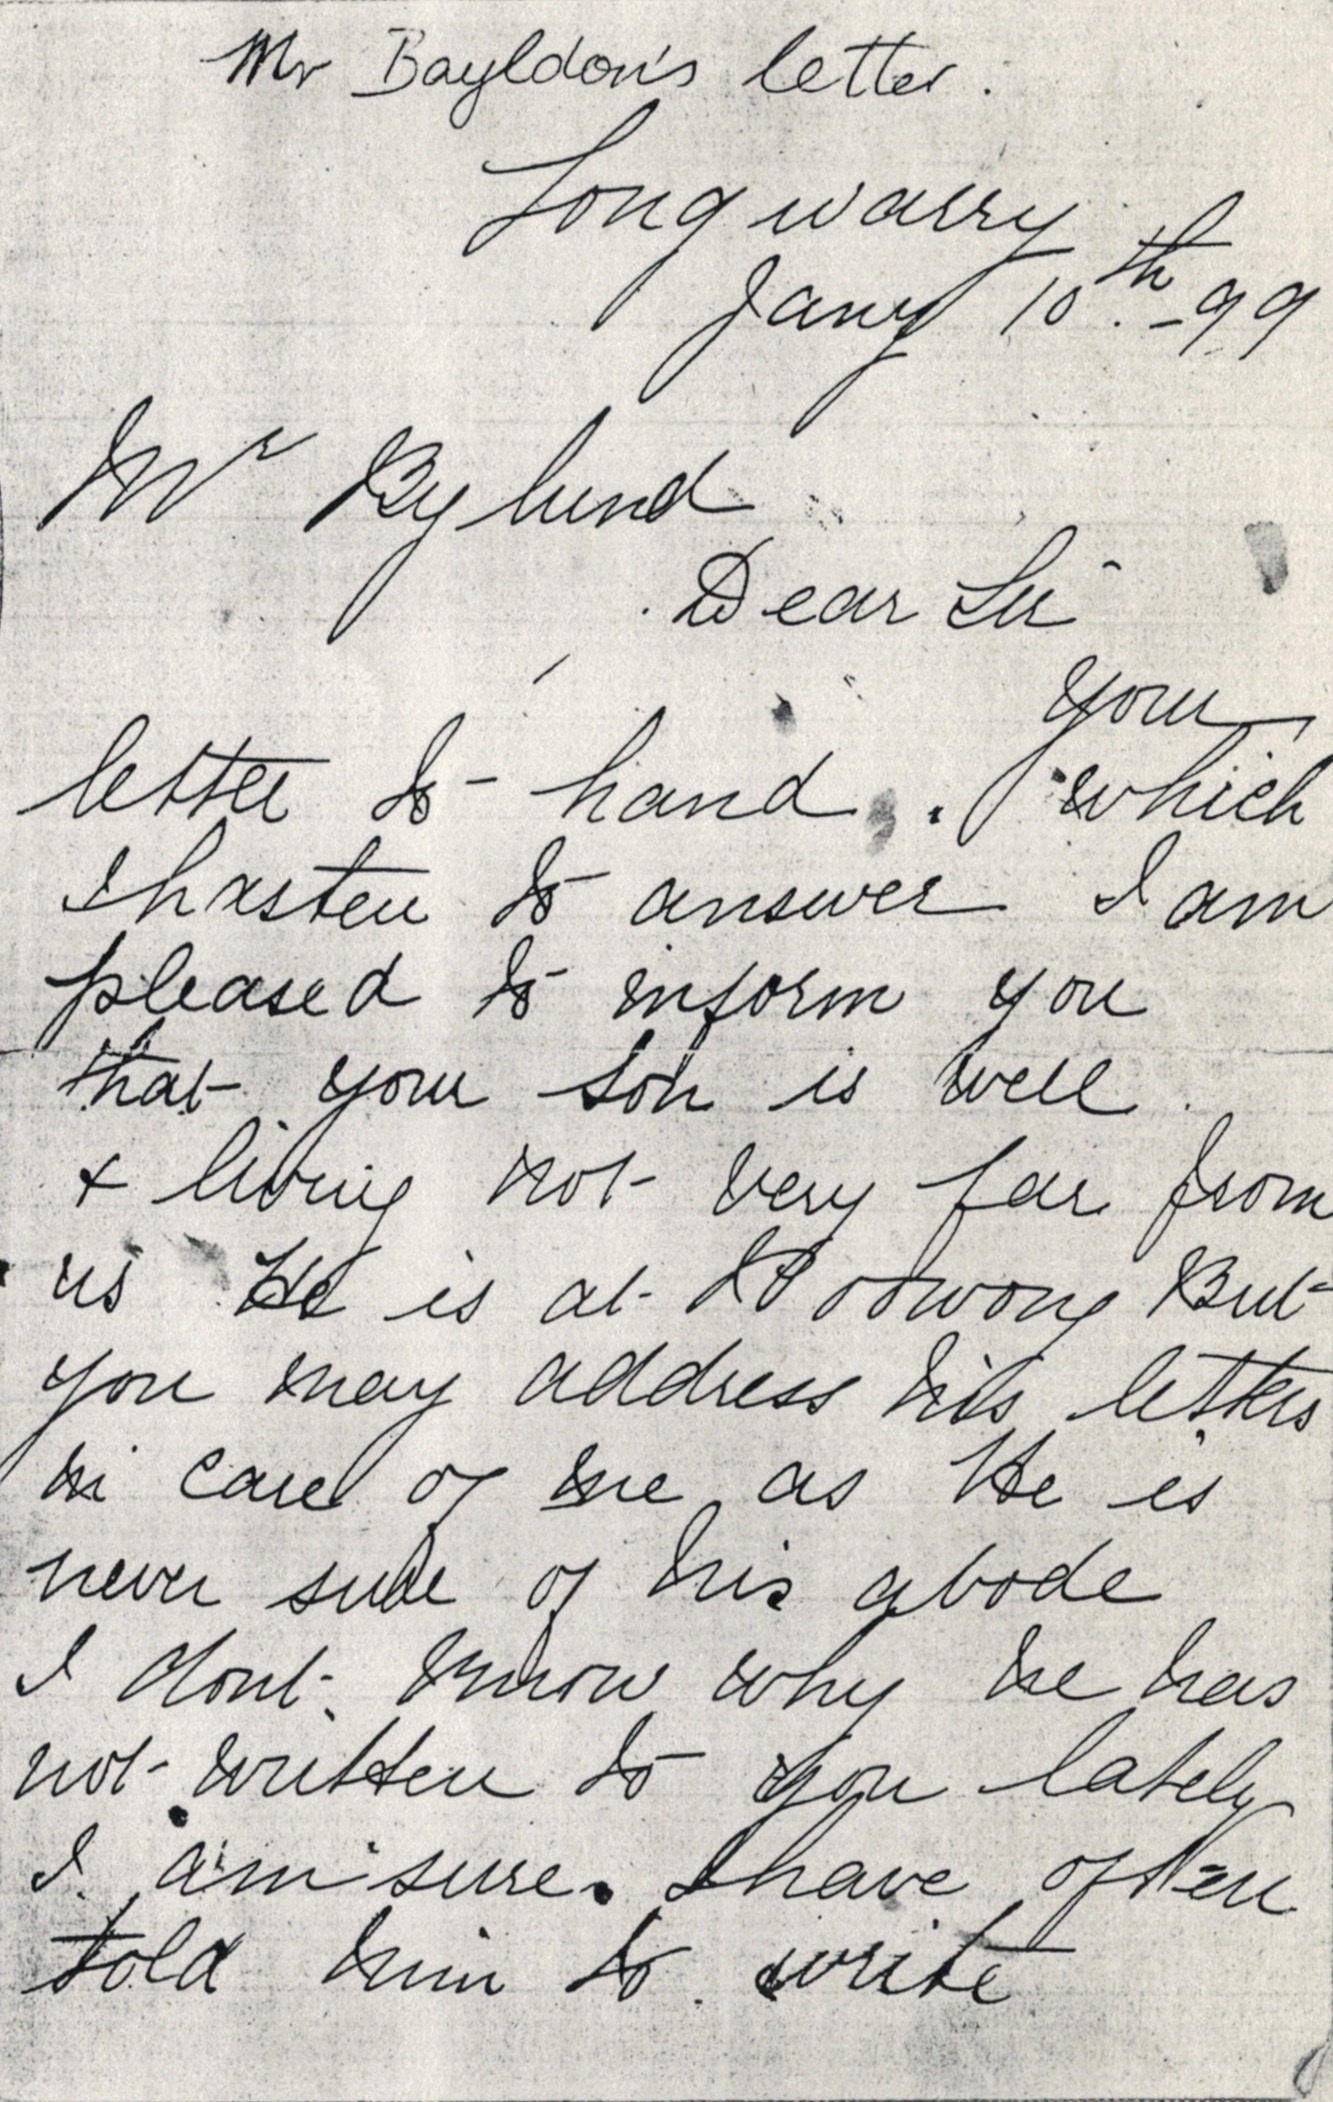 Mr Bayldon's letter.
Longwarry
Jany 10th. -99
Mr Bylund
Dear Sir
your
letter to hand. which
I hasten to answer I am
pleased to inform you
that your son is well
& living not very far from
us He is at Poowong But
you may address his letters
in care of me as He is
never sure of his abode
I dont know why he has
not written to you lately
I am sure. I have often
told him to write